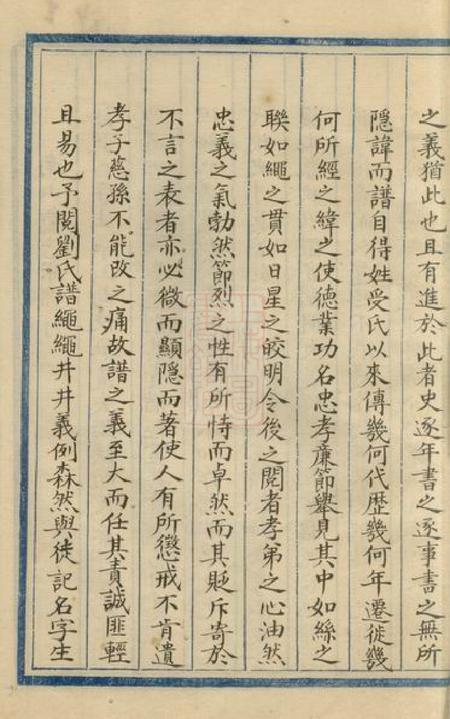 之義猶此也且有進於此者史逐年書之逐事書之無所
隱諱而譜自得姓受氏以來傳幾何代歷幾何年遷徙幾
何所經之緯之使德業功名忠孝亷節舉見其中如絲之
聯如繩之貫如日星之皎明令後之閱者孝弟之心油然
忠義之氣勃然節烈之性有所恃而卓然而其貶斥寄於
不言之表者亦必微而顯隱而著使人有所懲戒不肯遺
孝子慈孫不能改之痛故譜之義至大而任其責誠匪輕
且易也予閱劉氏譜繩繩井井義例森然與徒記名字生